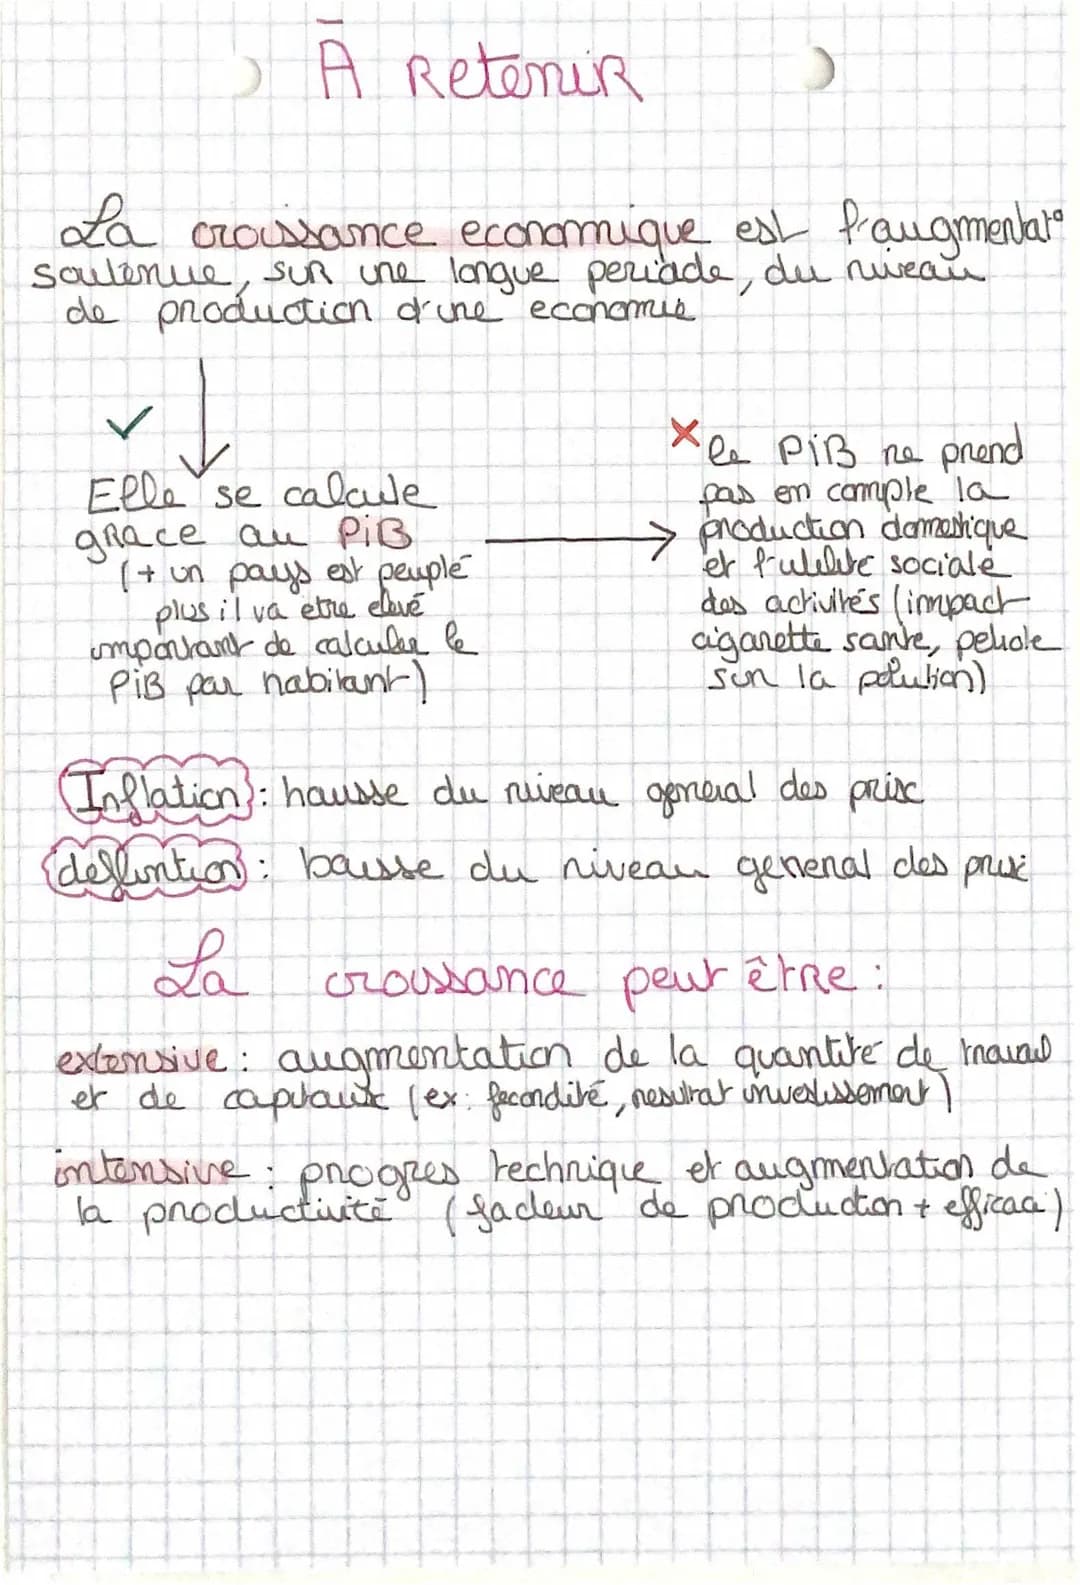 À Retenir
La croissance economique est l'augmentat°
soutenue, sur une longue periode, du niveau
de production d'une economie
Elle se calcule
grace au PiB
(+ un pays est peuplé
plus il va etre elevé
important de calculer le
PiB par habitant)
le PiB ne prend
pas en compte la
production domestique
et l'utilite sociale
des activités (impact
cigarette sante, petrole
sur la polution)
Inflation : hausse du niveau general des prix
deflation : baisse du niveau general des prix
La croissance peut être :
extensive : augmentation de la quantité de travail
et de capitaux (ex: fecondité, resultat investissement)
intensive : progres technique et augmentation de
la productivité (facteur de production + efficace)